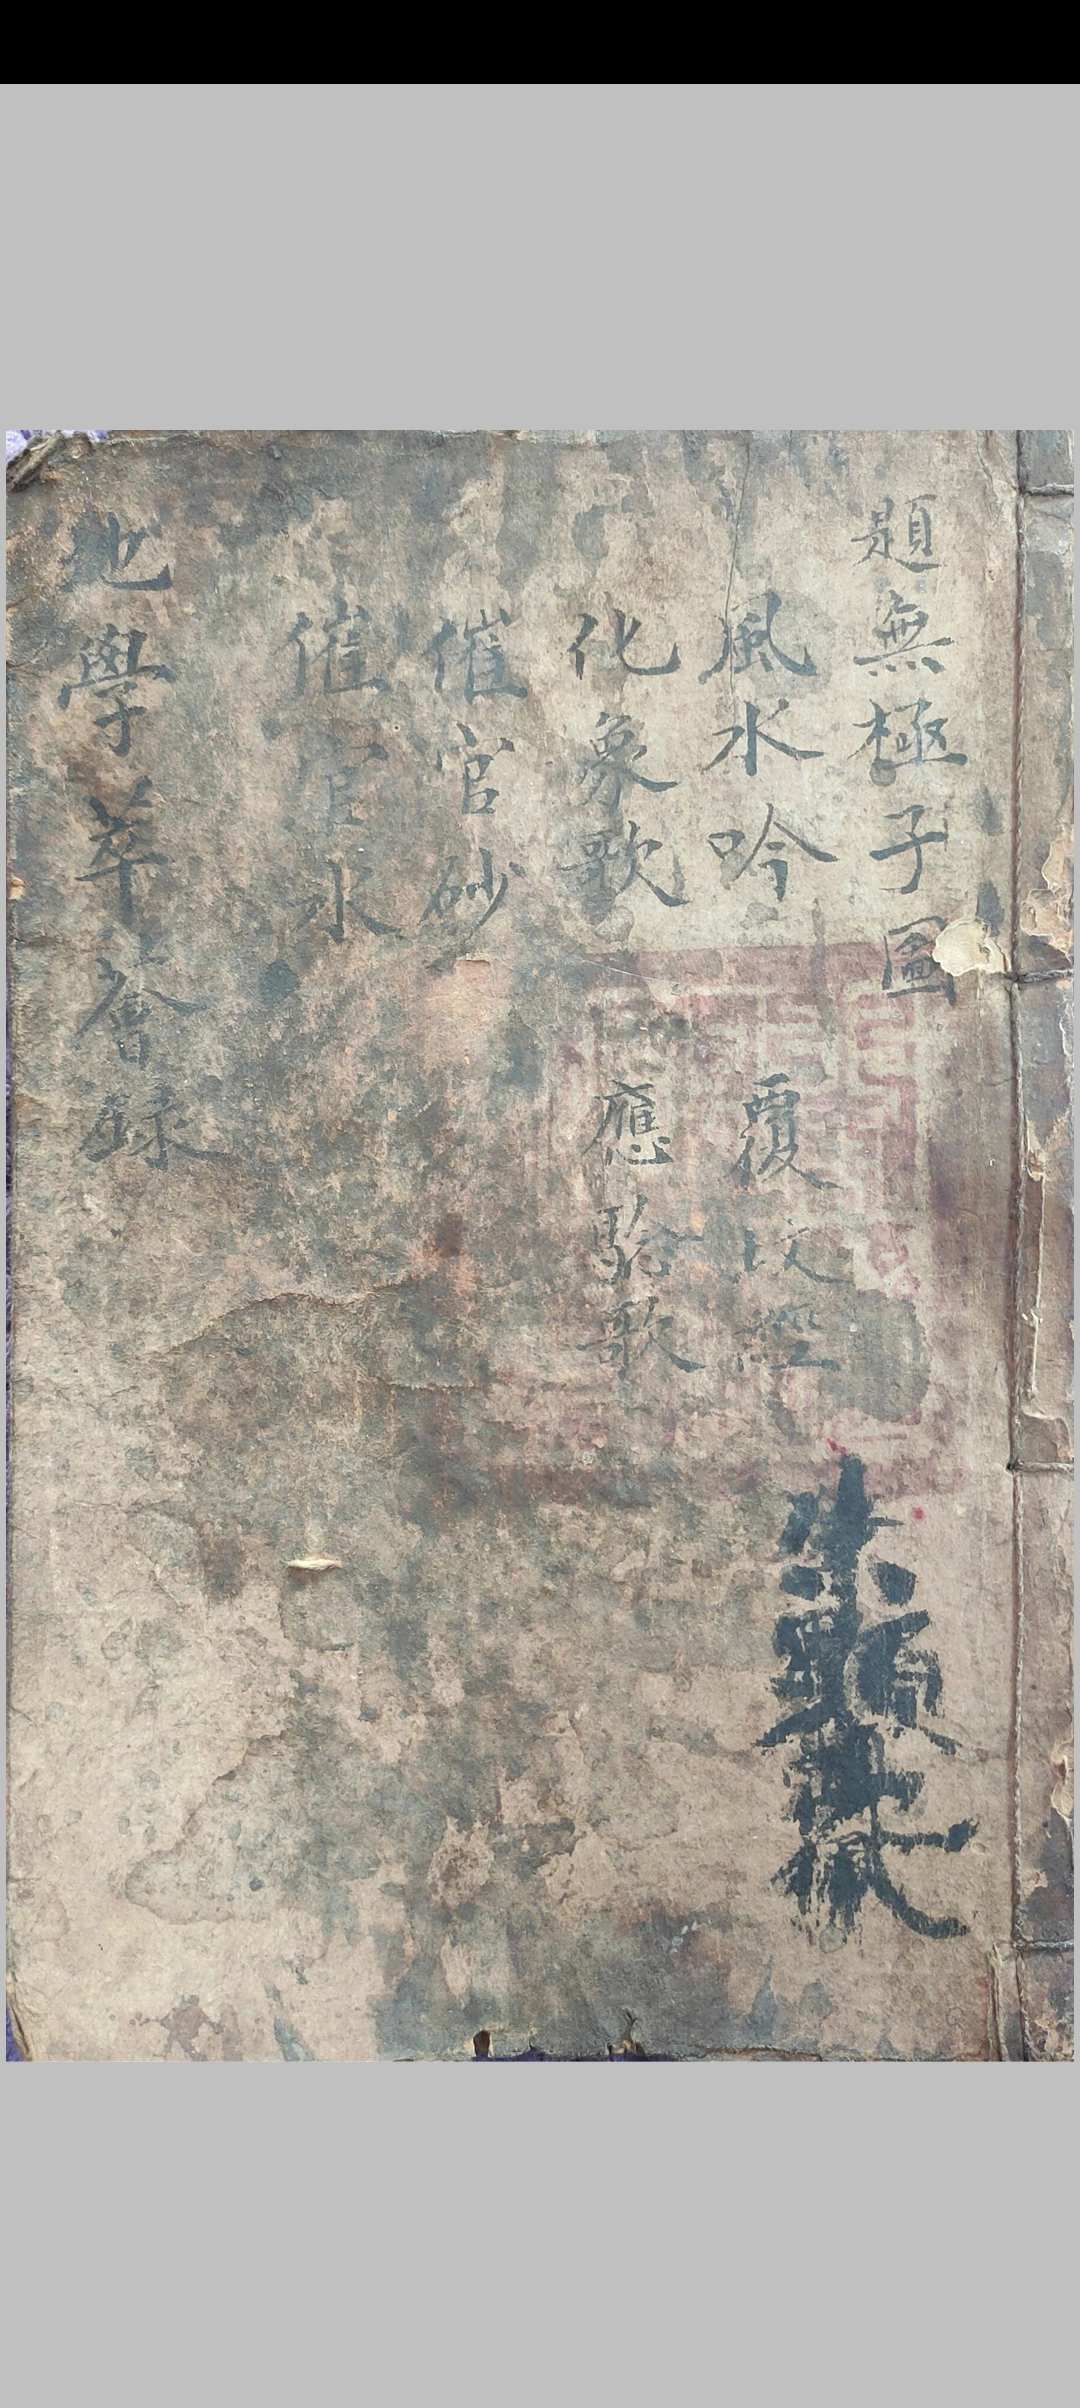 題無極子圖
風水吟
覆墳經
化象歌
應驗歌
催官砂
催官水
地學萃薈錄